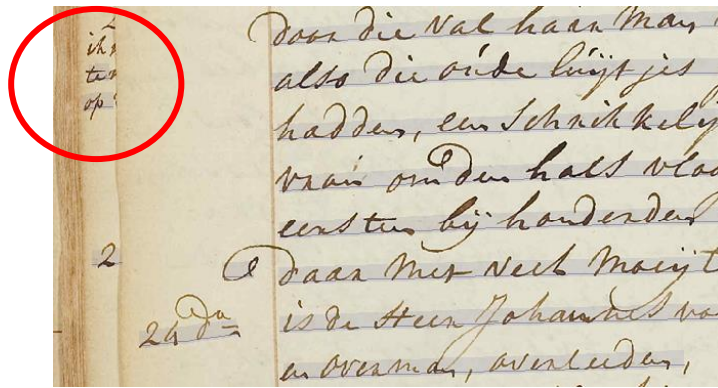 ik
te
op
door die val haar man
also die oúde luijtjes
hadden, een schrikkely
vraú om den hals vloog
eersten bij honderden
2
daar met veel moeijt
24 do
is de Heer Johannes va
en overman, overleeden,